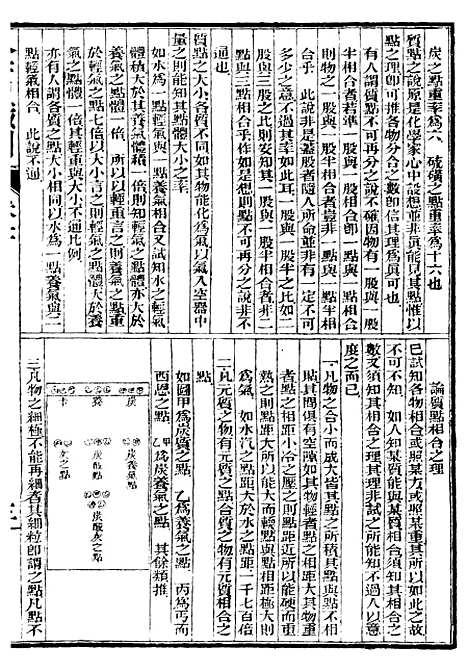 炭之點重率爲六　硫磺之點重率爲十六也
質點之說原是化學家心中設想並非眞能見其點惟以
點之理卽可推各物分合之數卽信其理爲眞可也
有人謂質點不可再分之說不確因物有一股與一股
半相合者若準一股與一股相合卽一點與一點相合
則一股與一股半相合者豈非一點與一點半相
合乎　此說非是蓋股者隨人所命並非有一定不可
多少之意不過其率如此耳一股與一股半之比如二
股與三股之比則安知其一股與一股半相合者非二
點與三點相合乎作如是想則點不可再分之說非不
通也
質點之大小各質不同如其物能化爲氣以氣入空器中
量之則能知其點體大小之率
如水爲一點輕氣與一點養氣相合又試知水之輕氣
體積大於其養氣體積一倍則知輕氣之點體亦大於
養氣之點體一倍　所以以輕重言之則養氣之點重
於輕氣之點七倍以大小言之則輕氣之點體大於養
氣之點體一倍其輕重與大小不通比例
亦有人謂各質之點大小相同以水爲一點養氣與二
點輕氣相合　此說不通
論質點相合之理
已試知各物相合或照某方或照某重其所以如此之故
不可不知　如人知某質能與某質相合須知其相合之
數又須知其相合之理其理非試之所能知不過人以意
度之而已
一凡物之合小而成大皆其點之所積其點與點不相
貼其間俱有空隙如其物輕者點之相距大其物重
者點之相距小冷之壓之則點距近所以能硬而重
熱之則點距大所以能大而輕點與點相距極大則
爲氣　如水汽之點距大於水之點距一千七百倍
二凡元質之物有元質之點合質之物有元質相合之
點
如圖甲爲炭質之點　乙爲養氣之點　丙爲丐而
西恩之點　甲乙爲炭養氣之點　其餘類推
炭　養　丐
炭養氣點
炭酸點
灰之點
炭酸灰之點
三凡物之細極不能再細者其細粒卽謂之點凡點不